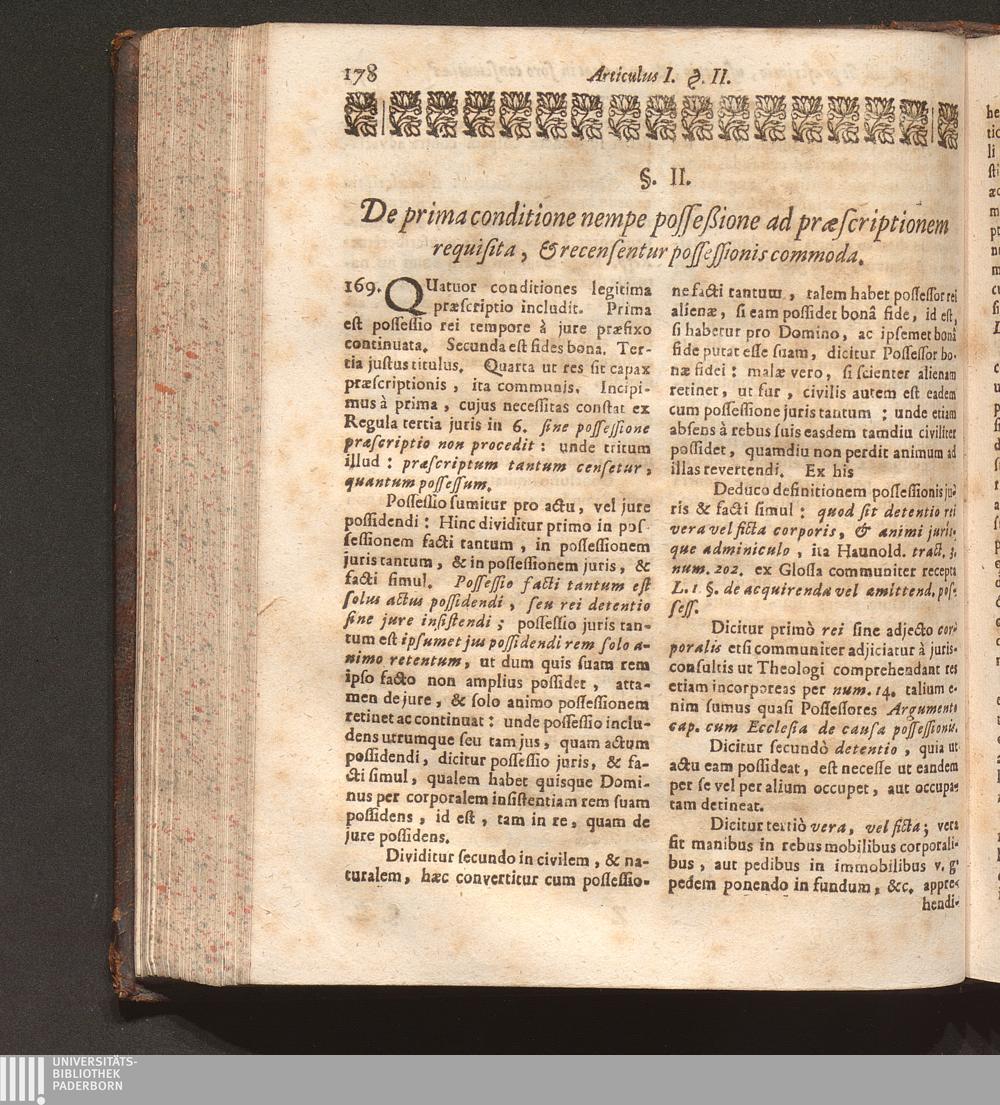 178
Articulus I. §. II.
§. II.
De prima conditione nempe poſſeßione ad præſcriptionem
requiſita, & recenſentur poſſeſſionis commoda.
169. QUatuor conditiones legitima
præſcriptio includit. Prima
eſt poſſeſſio rei tempore à jure præfixo
continuata. Secunda eſt fides bona. Ter-
tia juſtus titulus. Quarta ut res ſit capax
præſcriptionis, ita communis. Incipi-
mus à prima, cujus neceſſitas conſtat ex
Regula tertia juris in 6. ſine poſſeſſione
præſcriptio non procedit: unde tritum
illud: præſcriptum tantum cenſetur,
quantum poſſeſſum.
Poſſeſſio ſumitur pro actu, vel jure
poſſidendi: Hinc dividitur primo in poſ-
ſeſſionem facti tantum, in poſſeſſionem
juris tantum, & in poſſeſſionem juris, &
facti ſimul. Poſſeſſio facti tantum eſt
ſolus actus poſſidendi, ſeu rei detentio
ſine jure inſiſtendi; poſſeſſio juris tan-
tum eſt ipſumet jus poſſidendi rem ſolo a-
nimo retentum, ut dum quis ſuam rem
ipſo facto non amplius poſſidet, atta-
men de jure, & ſolo animo poſſeſſionem
retinet ac continuat: unde poſſeſſio inclu-
dens utrumque ſeu tam jus, quam actum
poſſidendi, dicitur poſſeſſio juris, & fa-
cti ſimul, qualem habet quisque Domi-
nus per corporalem inſiſtentiam rem ſuam
poſſidens, id eſt, tam in re, quam de
jure poſſidens.
Dividitur ſecundo in civilem, & na-
turalem, hæc convertitur cum poſſeſſio-
ne facti tantum, talem habet poſſeſſor rei
alienæ, ſi eam poſſidet bonâ fide, id eſt,
ſi habetur pro Domino, ac ipſemet bonâ
fide putat eſſe ſuam, dicitur Poſſeſſor bo-
næ fidei: malæ vero, ſi ſcienter alienam
retinet, ut fur, civilis autem eſt eadem
cum poſſeſſione juris tantum: unde etiam
abſens à rebus ſuis easdem tamdiu civiliter
poſſidet, quamdiu non perdit animum ad
illas revertendi. Ex his
Deduco definitionem poſſeſſionis ju-
ris & facti ſimul: quod ſit detentio rei
vera vel ficta corporis, & animi juris-
que adminiculo, ita Haunold. tract. 3.
num. 202. ex Gloſſa communiter recepta
L. 1 §. de acquirenda vel amittend. poſ-
ſeſſ.
Dicitur primò rei ſine adjecto cor-
poralis etſi communiter adjiciatur à juris-
conſultis ut Theologi comprehendant res
etiam incorporeas per num. 14. talium e-
nim ſumus quaſi Poſſeſſores Argumento
cap. cum Eccleſia de cauſa poſſeſſionis.
Dicitur ſecundò detentio, quia ut
actu eam poſſideat, eſt neceſſe ut eandem
per ſe vel per alium occupet, aut occupa-
tam detineat.
Dicitur tertiò vera, vel ficta; vera
fit manibus in rebus mobilibus corporali-
bus, aut pedibus in immobilibus v. g.
pedem ponendo in fundum, &c. appre-
hendi-
UNIVERSITÄTS-
BIBLIOTHEK
PADERBORN